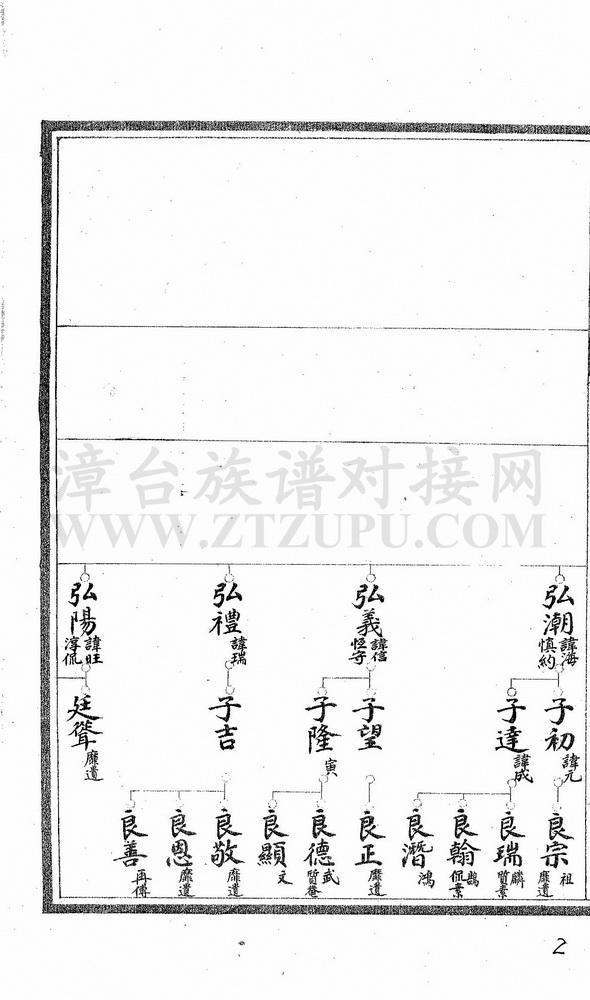 漳台族谱对接网
WWW.ZTZUPU.COM
弘潮 諱海 慎約
弘義 諱信 恒守
弘禮 諱瑞
弘陽 諱旺 淳侃
子初 諱元
子達 諱成
子望
子隆 寅
子吉
廷聳 靡遺
良宗 祖 靡遺
良瑞 麟 質素
良翰 鵾 侃業
良潛 鴻
良正 靡遺
良德 武 質菴
良顯 文
良敬 靡遺
良恩 靡遺
良善 再傳
2